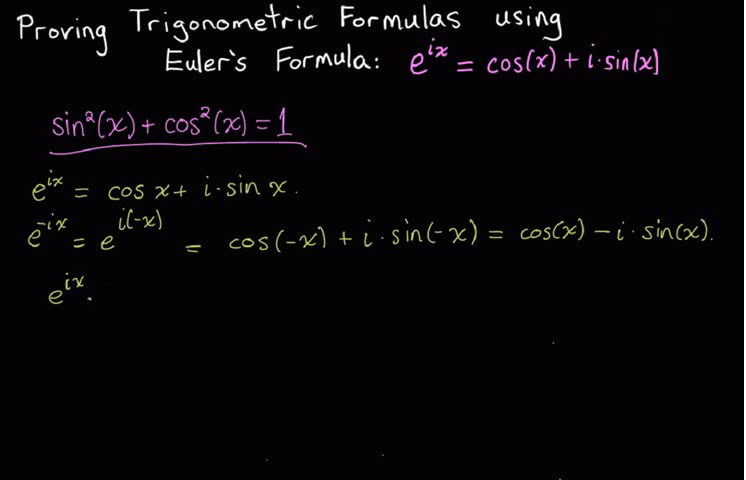 Proving Trigonometric Formulas using
Euler's Formula: e^{ix} = cos(x) + i·sin(x)
sin²(x) + cos²(x) = 1
e^{ix} = cos x + i·sin x.
e^{-ix} = e^{i(-x)} = cos(-x) + i·sin(-x) = cos(x) - i·sin(x).
e^{ix}.